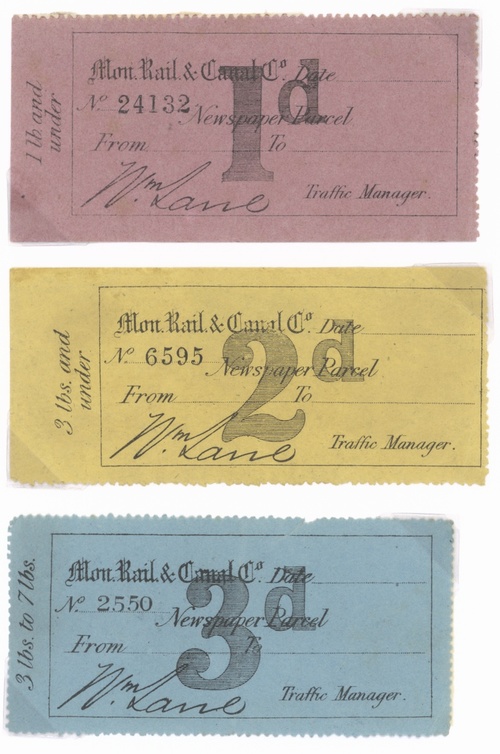 1 lb. and
under
Mon. Rail. & Canal Co. Date
No. 24132 Newspaper Parcel
1d
From To
Wm. Lane Traffic Manager.
3 lbs. and
under
Mon. Rail. & Canal Co. Date
No. 6595 Newspaper Parcel
2d
From To
Wm. Lane Traffic Manager.
3 lbs. to 7 lbs.
Mon. Rail. & Canal Co. Date
No. 2550 Newspaper Parcel
3d
From To
Wm. Lane Traffic Manager.